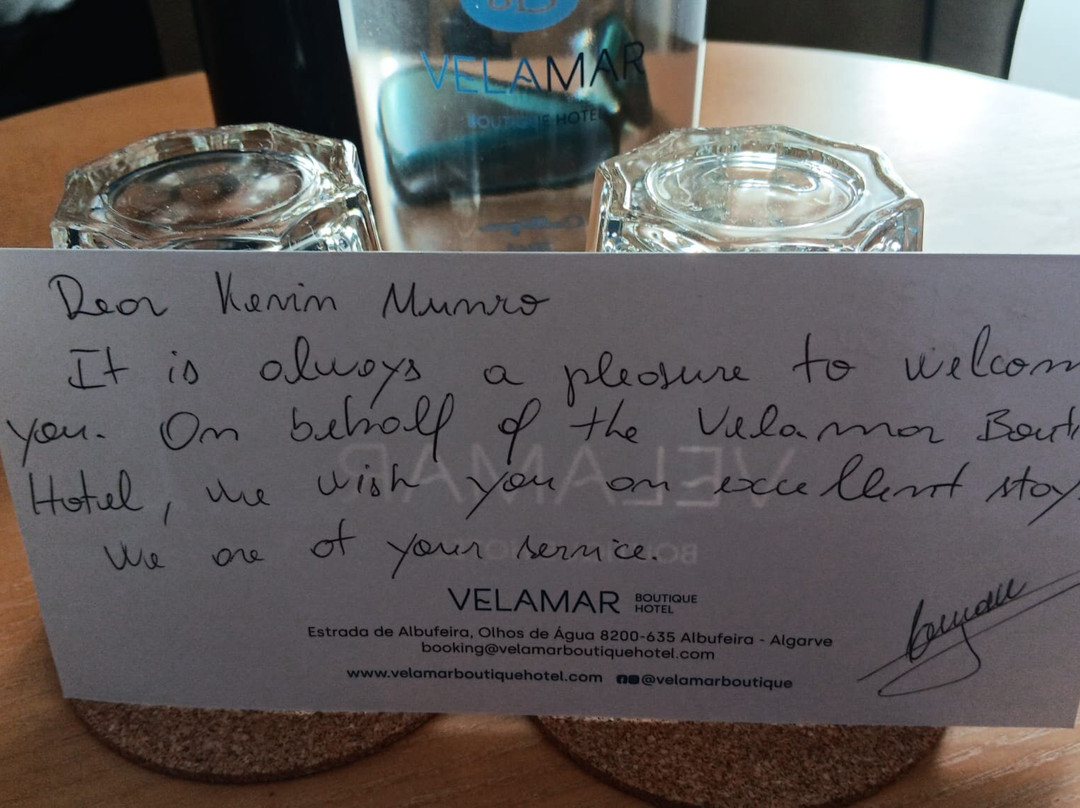 VELAMAR
BOUTIQUE HOTEL
Dear Kevin Munro
It is always a pleasure to welcom
you. On behalf of the Velamar Bouti
Hotel, we wish you an excellent stay.
We are at your service.
VELAMAR BOUTIQUE HOTEL
Estrada de Albufeira, Olhos de Água 8200-635 Albufeira - Algarve
booking@velamarboutiquehotel.com
www.velamarboutiquehotel.com @velamarboutique